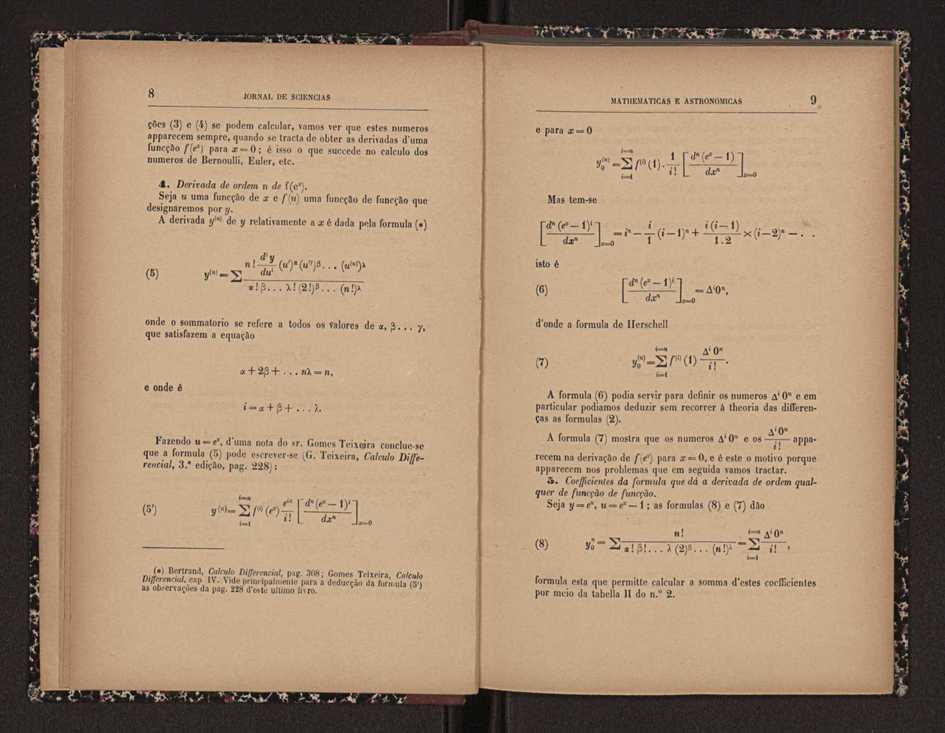 8
JORNAL DE SCIENCIAS
ções (3) e (4) se podem calcular, vamos ver que estes numeros
apparecem sempre, quando se tracta de obter as derivadas d'uma
funcção f(eˣ) para x = 0; é isso o que succede no calculo dos
numeros de Bernoulli, Euler, etc.
4. Derivada de ordem n de f(eˣ).
Seja u uma funcção de x e f(u) uma funcção de funcção que
designaremos por y.
A derivada y⁽ⁿ⁾ de y relativamente a x é dada pela formula (*)
(5) y⁽ⁿ⁾ = Σ n! dⁱy/duⁱ (u')ᵅ (u'')ᵝ . . . (u⁽ⁿ⁾)^λ / α! β . . . λ! (2!)ᵝ . . . (n!)^λ
onde o sommatorio se refere a todos os valores de α, β . . . γ,
que satisfazem a equação
α + 2β + . . . nλ = n,
e onde é
i = α + β + . . . λ.
Fazendo u = eˣ, d'uma nota do sr. Gomes Teixeira conclue-se
que a formula (5) pode escrever-se (G. Teixeira, Calculo Diffe-
rencial, 3.ª edição, pag. 228):
(5') y⁽ⁿ⁾ = Σ_{i=1}^{i=n} f⁽ⁱ⁾(eˣ) eⁱˣ/i! [dⁿ(eˣ − 1)ⁱ/dxⁿ]_{x=0}
(*) Bertrand, Calculo Differencial, pag. 308; Gomes Teixeira, Calculo
Differencial, cap. IV. Vide principalmente para a deducção da formula (5')
as observações da pag. 228 d'este ultimo livro.
MATHEMATICAS E ASTRONOMICAS
9
e para x = 0
y₀⁽ⁿ⁾ = Σ_{i=1}^{i=n} f⁽ⁱ⁾(1) . 1/i! [dⁿ(eˣ − 1)/dxⁿ]_{x=0}
Mas tem-se
[dⁿ(eˣ − 1)ⁱ/dxⁿ]_{x=0} = iⁿ − i/1 (i − 1)ⁿ + i(i − 1)/1 . 2 × (i − 2)ⁿ − . .
isto é
(6) [dⁿ(eˣ − 1)ⁱ/dxⁿ]_{x=0} = Δⁱ0ⁿ,
d'onde a formula de Herschell
(7) y₀⁽ⁿ⁾ = Σ_{i=1}^{i=n} f⁽ⁱ⁾(1) Δⁱ0ⁿ/i! .
A formula (6) podia servir para definir os numeros Δⁱ0ⁿ e em
particular podiamos deduzir sem recorrer á theoria das differen-
ças as formulas (2).
A formula (7) mostra que os numeros Δⁱ0ⁿ e os Δⁱ0ⁿ/i! appa-
recem na derivação de f(eˣ) para x = 0, e é este o motivo porque
apparecem nos problemas que em seguida vamos tractar.
5. Coefficientes da formula que dá a derivada de ordem qual-
quer de funcção de funcção.
Seja y = eᵘ, u = eˣ − 1; as formulas (8) e (7) dão
(8) y₀ⁿ = Σ n!/α! β! . . . λ (2)ᵝ . . . (n!)^λ = Σ_{i=1}^{i=n} Δⁱ0ⁿ/i! ,
formula esta que permitte calcular a somma d'estes coefficientes
por meio da tabella II do n.º 2.